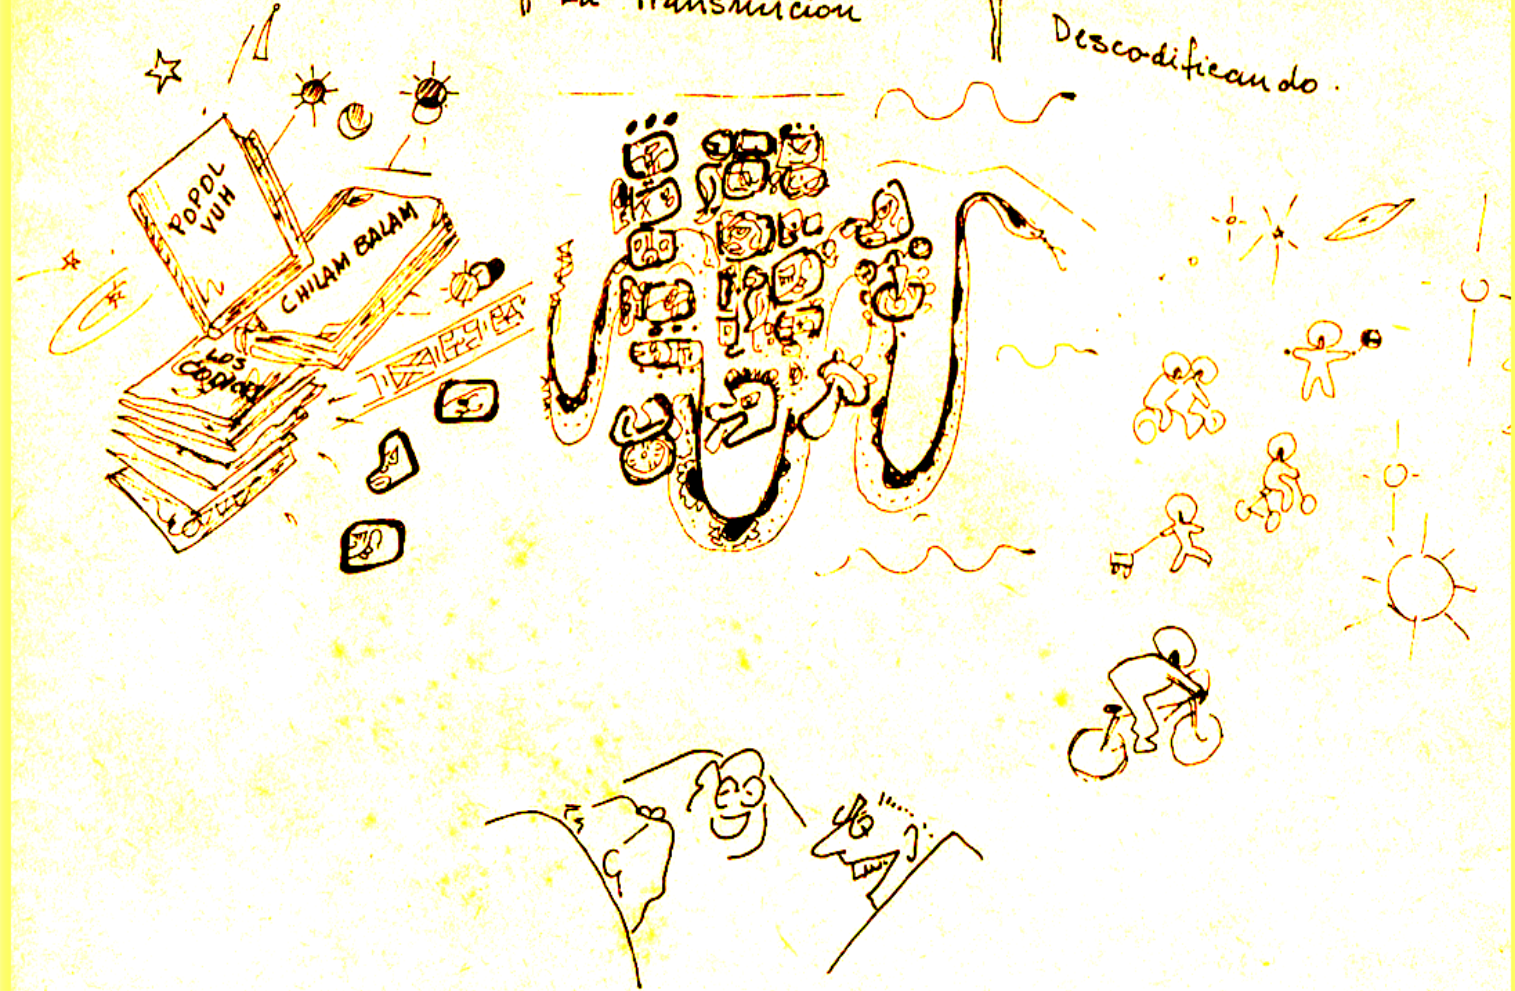 La Transmición
Descodificando.
POPOL
VUH
CHILAM BALAM
LOS
CODICES